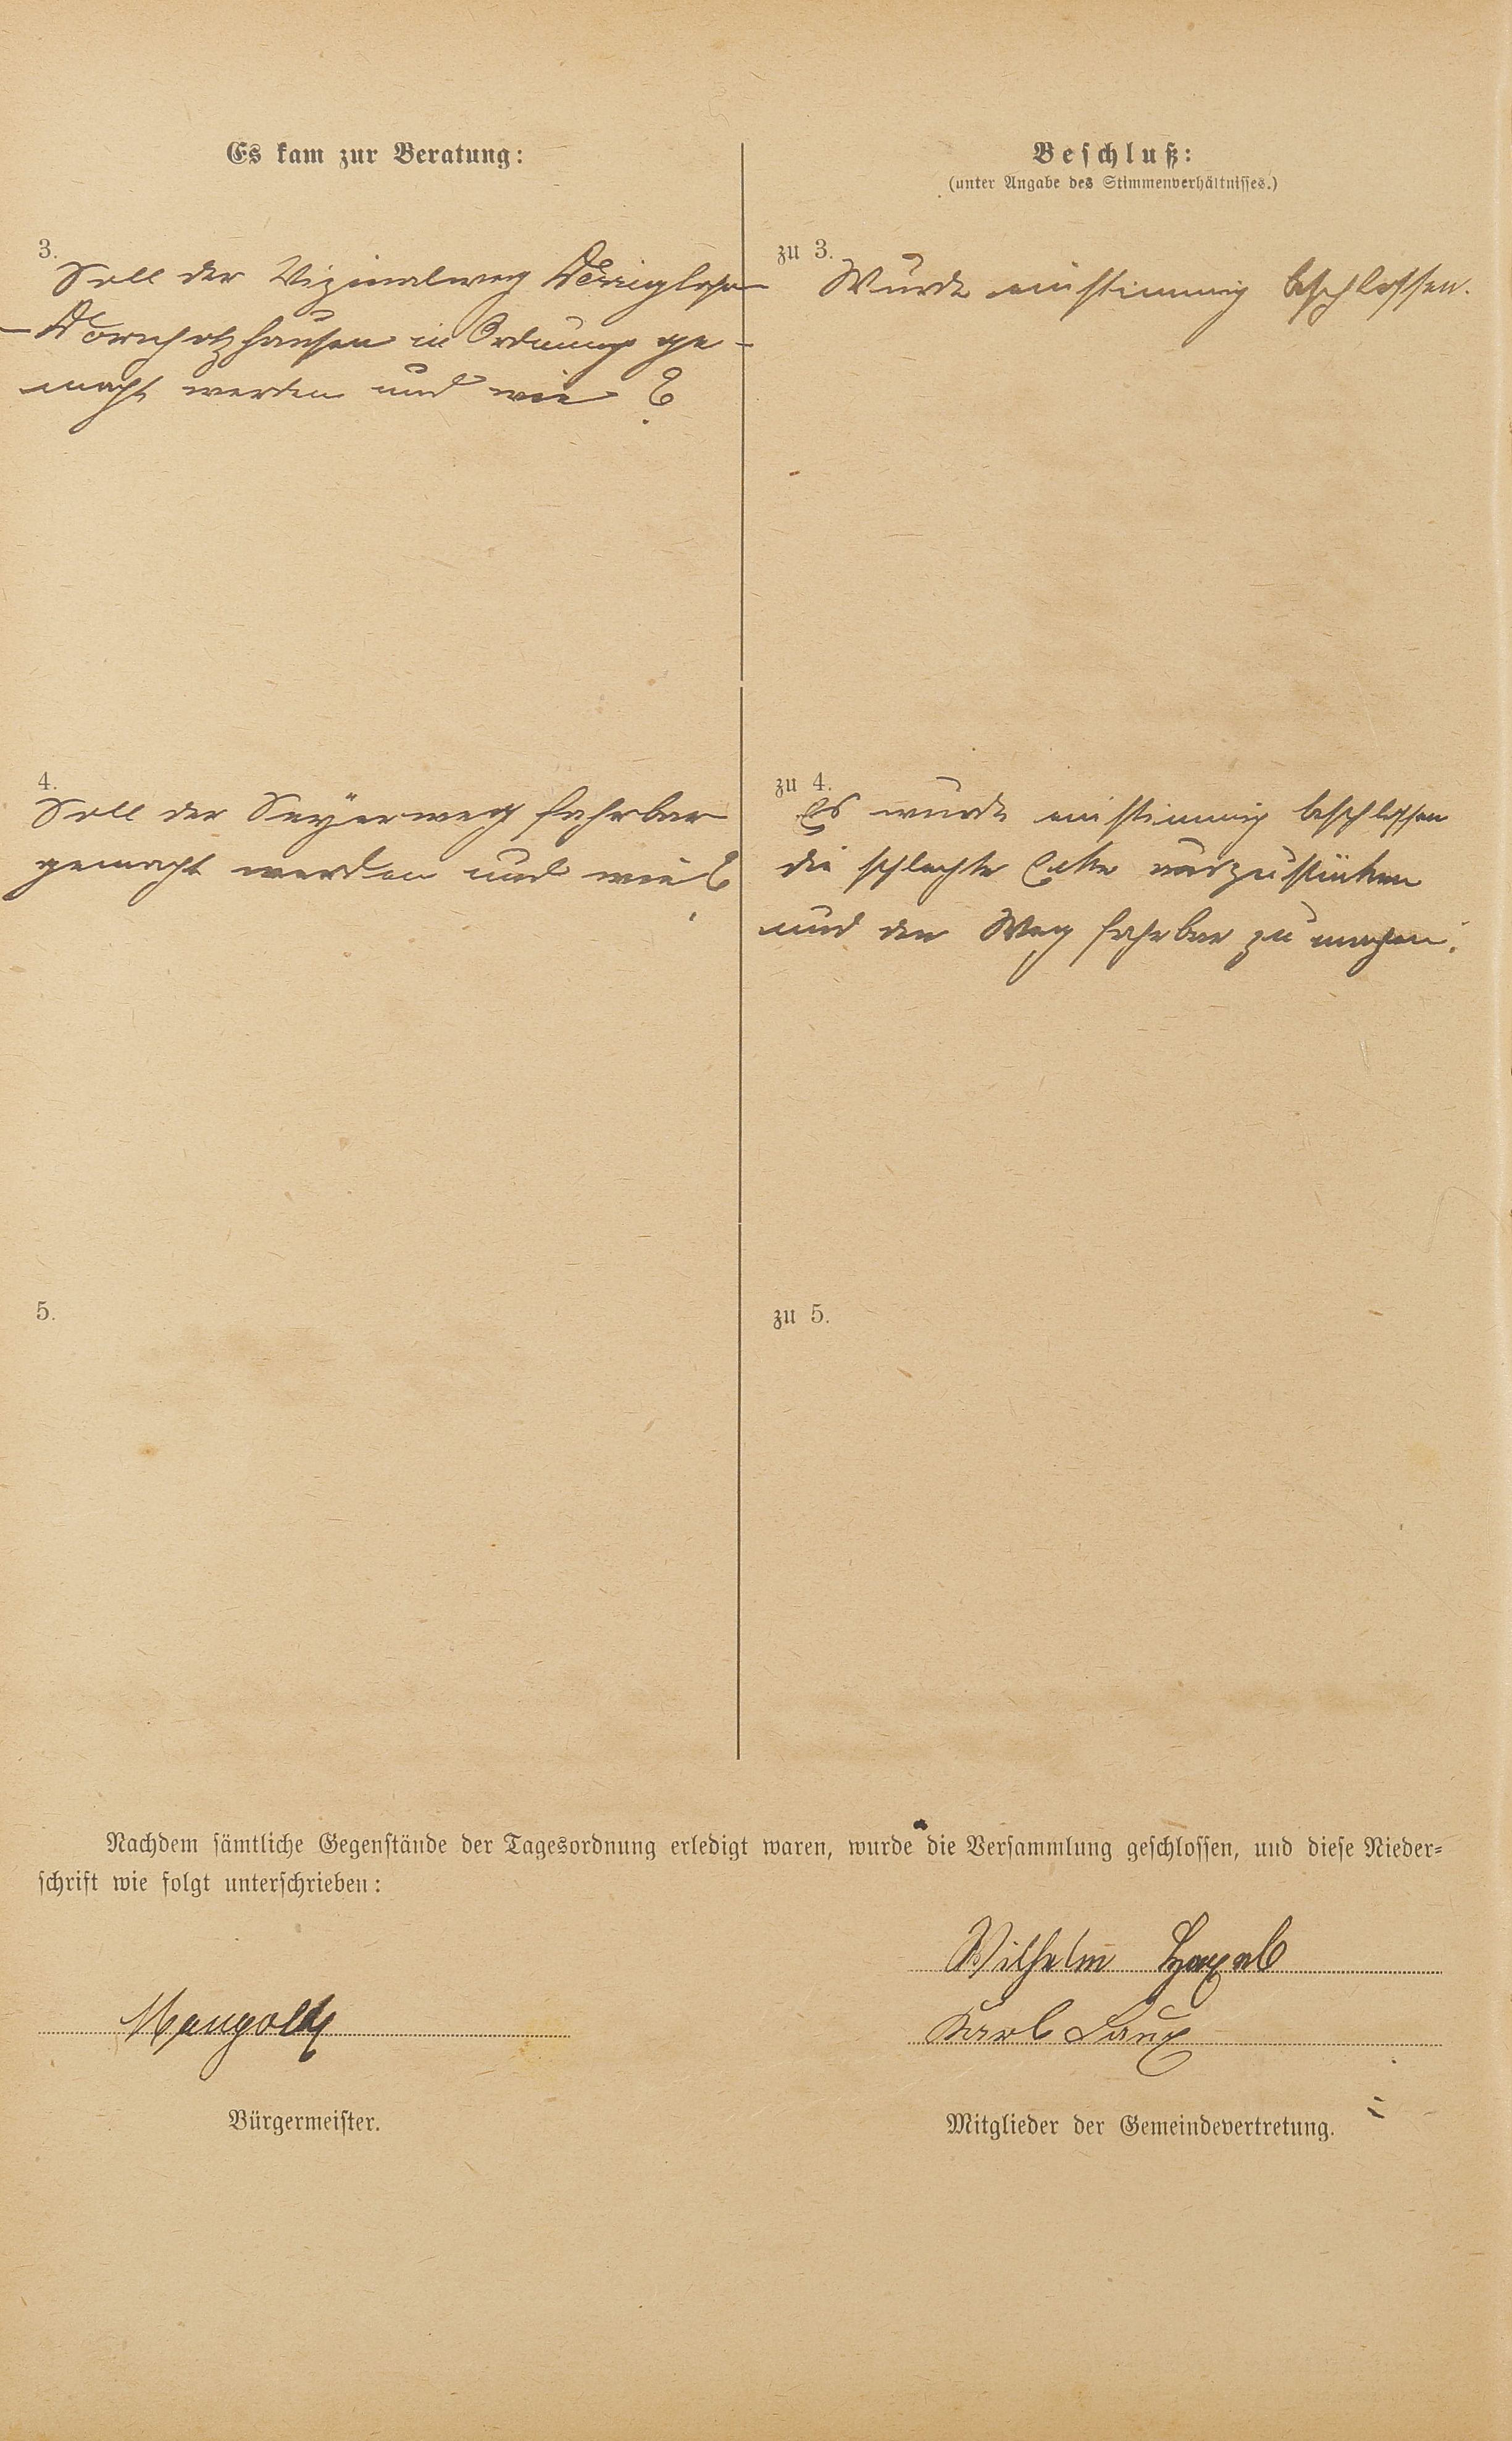 Es kam zur Beratung:
3.
Soll der Vizinalweg
Dornholzhausen in Ordnung ge-
macht werden und wie?
4.
Soll der fahrbar
gemacht werden und wie?
5.
Beschluß:
(unter Angabe des Stimmenverhältnisses.)
zu 3.
Wurde einstimmig beschlossen.
zu 4.
Es wurde einstimmig beschlossen
die schlechte
und den Weg fahrbar zu machen.
zu 5.
Nachdem sämtliche Gegenstände der Tagesordnung erledigt waren, wurde die Versammlung geschlossen, und diese Nieder=
schrift wie folgt unterschrieben:
Mangold
Bürgermeister.
Wilhelm
Karl
Mitglieder der Gemeindevertretung.